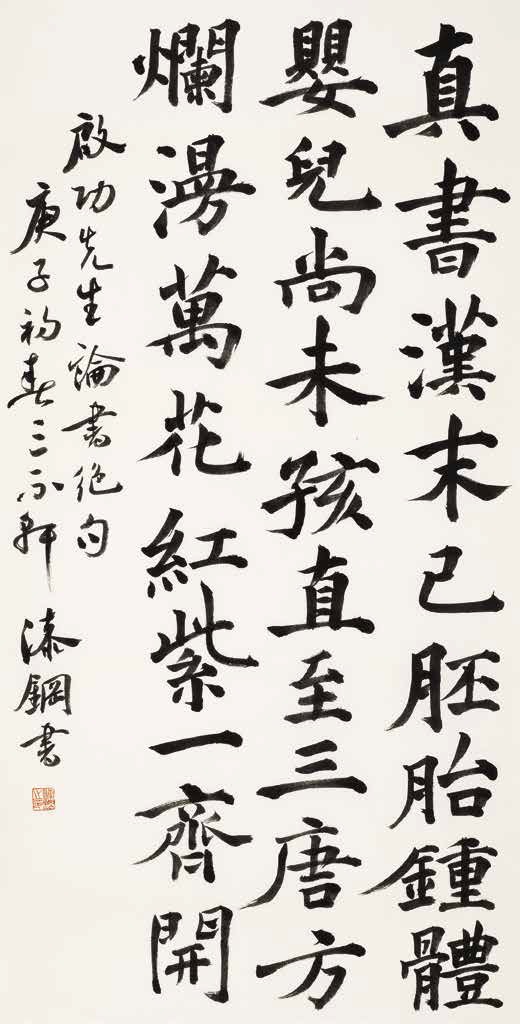 真書漢末已胚胎鍾體
嬰兒尚未孩直至三唐方
爛漫萬花紅紫一齊開
啟功先生論書絕句
庚子初春三不軒 漆鋼書